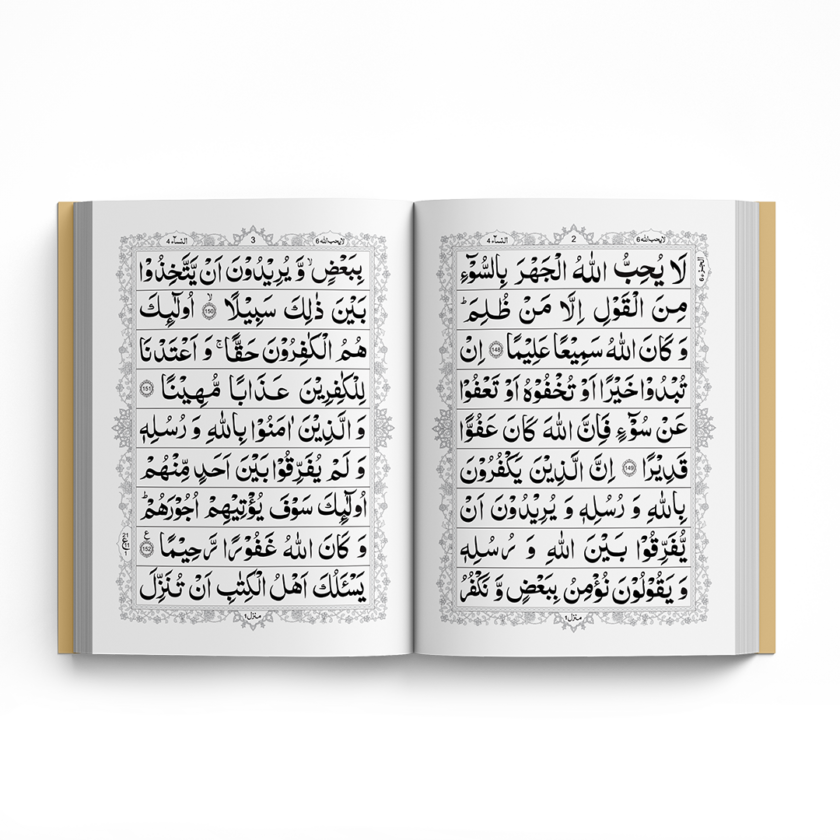 النسآء 4
2
لا یحب الله 6
لَا یُحِبُّ اللّٰهُ الْجَهْرَ بِالسُّوْٓءِ
مِنَ الْقَوْلِ اِلَّا مَنْ ظُلِمَؕ
وَ كَانَ اللّٰهُ سَمِیْعًا عَلِیْمًا ﴿148﴾ اِنْ
تُبْدُوْا خَیْرًا اَوْ تُخْفُوْهُ اَوْ تَعْفُوْا
عَنْ سُوْٓءٍ فَاِنَّ اللّٰهَ كَانَ عَفُوًّا
قَدِیْرًا ﴿149﴾ اِنَّ الَّذِیْنَ یَكْفُرُوْنَ
بِاللّٰهِ وَ رُسُلِهٖ وَ یُرِیْدُوْنَ اَنْ
یُّفَرِّقُوْا بَیْنَ اللّٰهِ وَ رُسُلِهٖ
وَ یَقُوْلُوْنَ نُؤْمِنُ بِبَعْضٍ وَّ نَكْفُرُ
منزل ١
النسآء 4
3
لا یحب الله 6
بِبَعْضٍۙ وَّ یُرِیْدُوْنَ اَنْ یَّتَّخِذُوْا
بَیْنَ ذٰلِكَ سَبِیْلًا ﴿150﴾ۙ اُولٰٓىِٕكَ
هُمُ الْكٰفِرُوْنَ حَقًّاۚ وَ اَعْتَدْنَا
لِلْكٰفِرِیْنَ عَذَابًا مُّهِیْنًا ﴿151﴾
وَ الَّذِیْنَ اٰمَنُوْا بِاللّٰهِ وَ رُسُلِهٖ
وَ لَمْ یُفَرِّقُوْا بَیْنَ اَحَدٍ مِّنْهُمْ
اُولٰٓىِٕكَ سَوْفَ یُؤْتِیْهِمْ اُجُوْرَهُمْؕ
وَ كَانَ اللّٰهُ غَفُوْرًا رَّحِیْمًا ﴿152﴾ ع
یَسْـَٔلُكَ اَهْلُ الْكِتٰبِ اَنْ تُنَزِّلَ
منزل ١